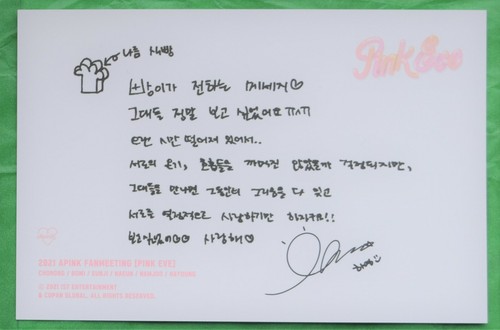 나름 식빵
Pink Eve
빵이가 전하는 메세지♡
그대들 정말 보고 싶었어요ㅠㅅㅠ
오랜 시간 떨어져 있어서..
서로의 온기, 호흡들을 까먹진 않았을까 걱정되지만,
그대들을 만나면 그동안의 그리움을 다 잊고
서로를 열정적으로 사랑하기만 하자구요!!
보고싶었어♡♡ 사랑해♡
하영
2021 APINK FANMEETING [PINK EVE]
CHORONG / BOMI / EUNJI / NAEUN / NAMJOO / HAYOUNG
© 2021 IST ENTERTAINMENT
& COPAN GLOBAL. ALL RIGHTS RESERVED.